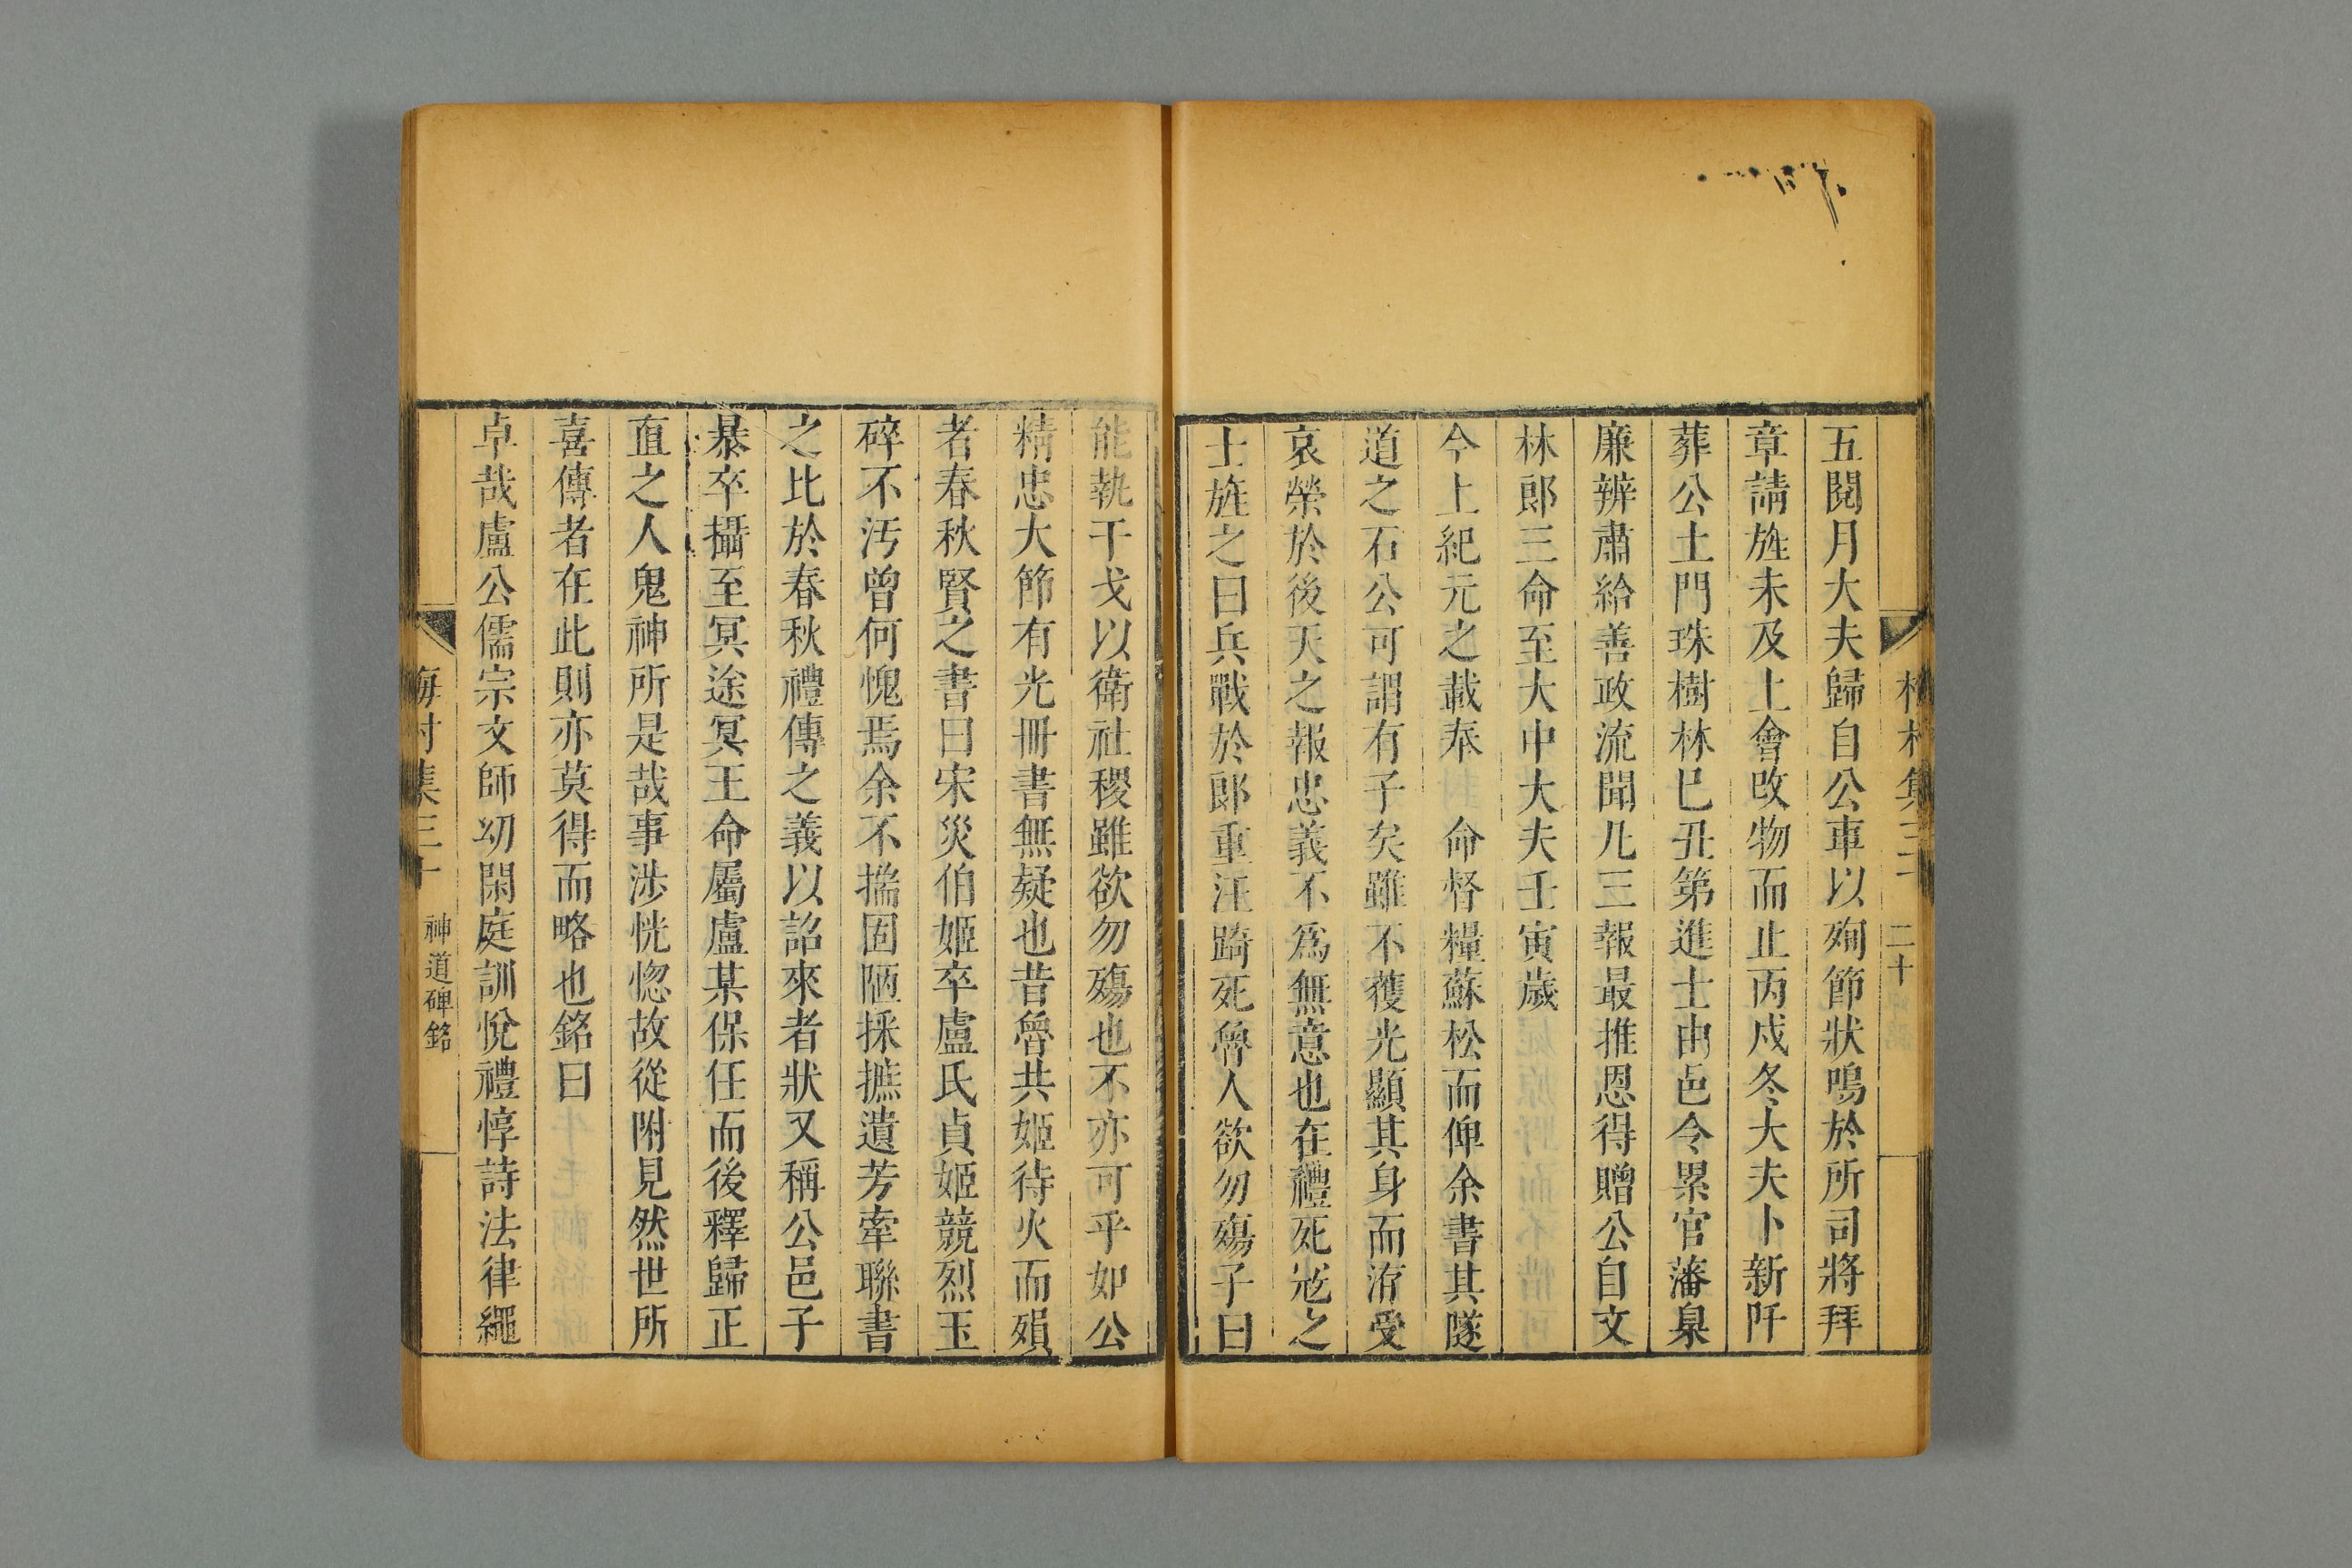 五閱月大夫歸自公車以殉節狀鳴於所司將拜
章請旌未及上會改物而止丙戍冬大夫卜新阡
葬公土門珠樹林巳丑第進士由邑令累官藩臬
廉辨肅給善政流聞凡三報最推恩得贈公自文
林郎三命至大中大夫壬寅歲
今上紀元之載奉 命督糧蘇松而俾余書其隧
道之石公可謂有子矣雖不獲光顯其身而洊受
哀榮於後天之報忠義不爲無意也在禮死宼之
士旌之曰兵戰於郎重汪踦死魯人欲勿殤子曰
二十
能執干戈以衛社稷雖欲勿殤也不亦可乎如公
精忠大節有光冊書無疑也昔魯共姬待火而殞
者春秋賢之書曰宋災伯姬卒盧氏貞姬競烈玉
碎不汚曾何愧焉余不揣固陋採摭遺芳牽聯書
之比於春秋禮傳之義以詔來者狀又稱公邑子
暴卒攝至冥途冥王命屬盧某保任而後釋歸正
直之人鬼神所是哉事涉恍惚故從附見然世所
喜傳者在此則亦莫得而略也銘曰
卓哉盧公儒宗文師幼閑庭訓悅禮惇詩法律繩
梅村集三十 神道碑銘